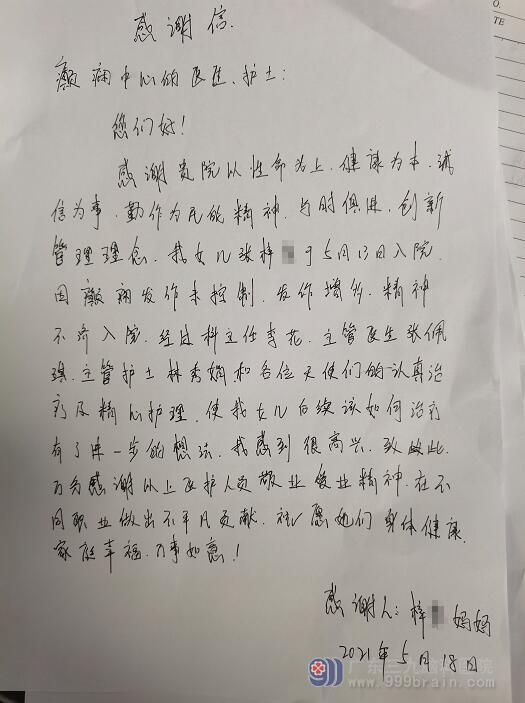 感谢信.
癫痫中心的医生、护士:
您们好!
感谢贵院以性命为上、健康为本、诚
信为事、勤作为民能精神、与时俱进、创新
管理理念. 我女儿张梓 于5月13日入院,
因癫痫发作未控制、发作增多、精神
不济入院. 经过科主任李花、主管医生张佩
琪、主管护士林秀娟和各位天使们的认真治
疗及精心护理、使我女儿后续该如何治疗
有了进一步的想法、我感到很高兴、致此,
万分感谢以上医护人员敬业爱业精神、在不
同职业做出不平凡贡献、祝愿她们身体健康、
家庭幸福、万事如意!
感谢人: 梓 妈妈
2021年5月18日
广东三九脑科医院
www.999brain.com
O.
TE